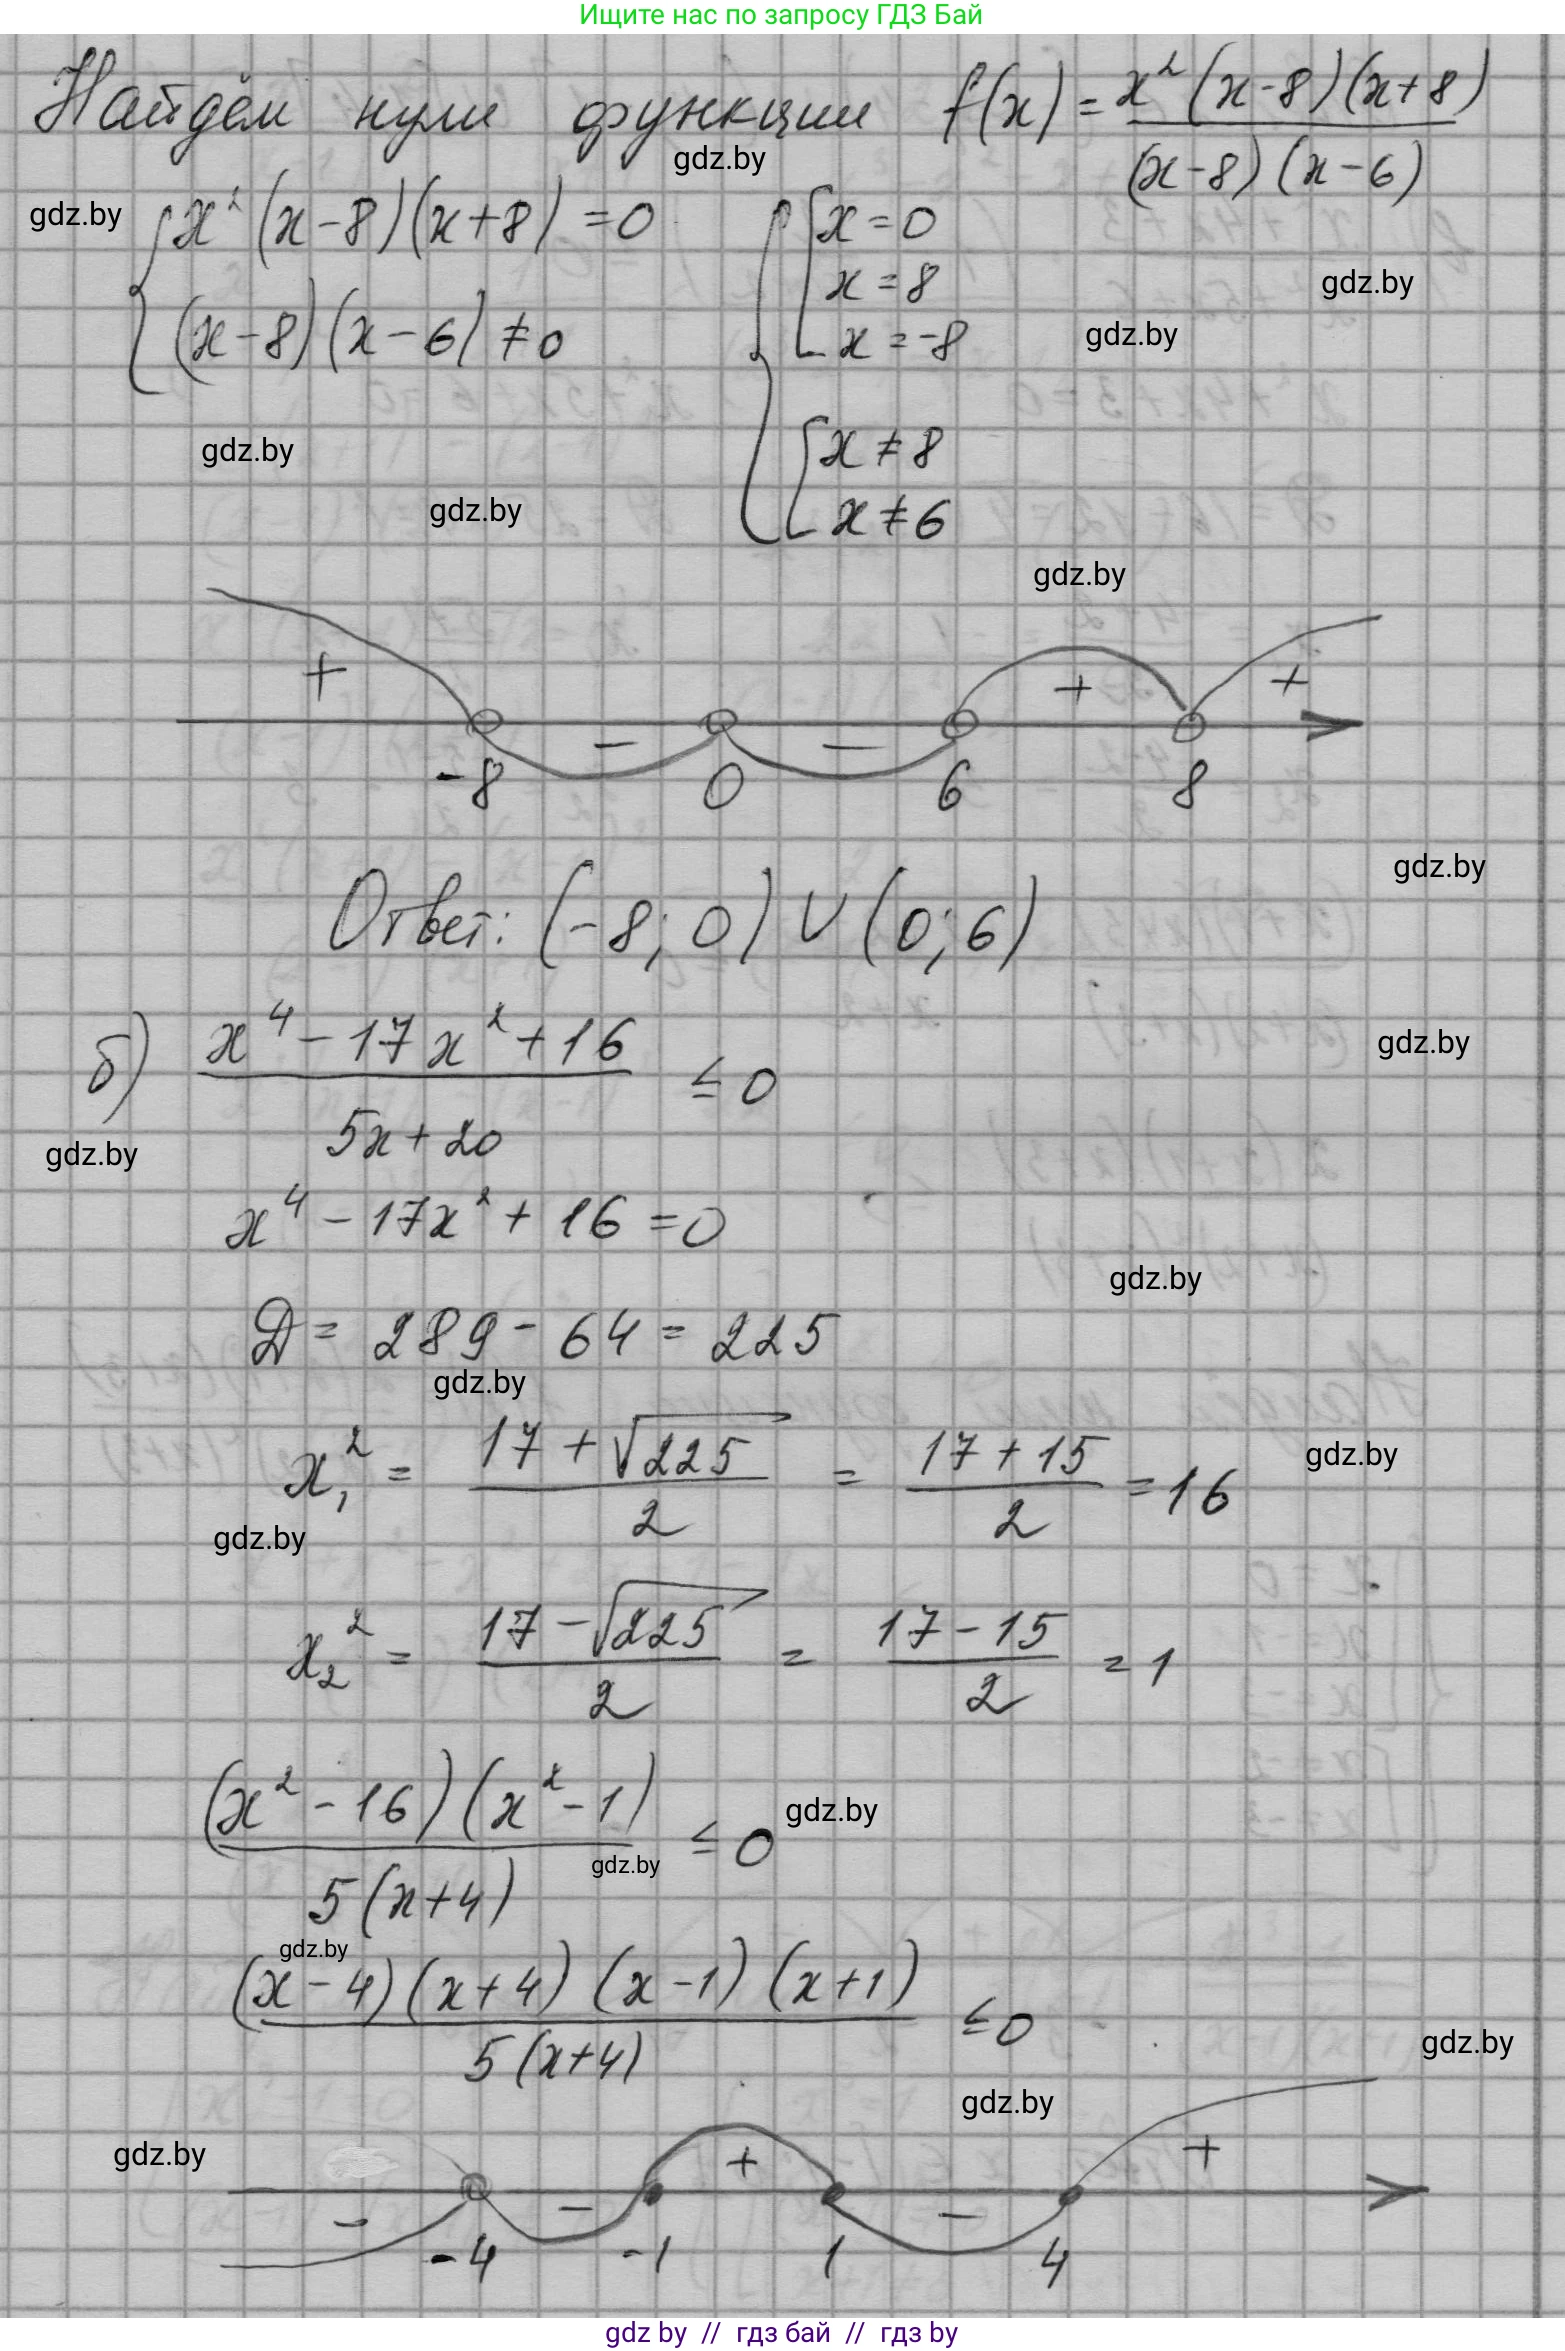 Ищите нас по запросу ГДЗ Бай
Найдём нули функции f(x) = x²(x-8)(x+8) / (x-8)(x-6)
gdz.by
gdz.by
x²(x-8)(x+8) = 0
x = 0
gdz.by
x = 8
(x-8)(x-6) ≠ 0
x = -8
gdz.by
gdz.by
x ≠ 8
gdz.by
x ≠ 6
gdz.by
+ - - + +
-8 0 6 8
gdz.by
Ответ: (-8; 0) ∪ (0; 6)
б) x⁴ - 17x² + 16 / 5x + 20 ≤ 0
gdz.by
gdz.by
x⁴ - 17x² + 16 = 0
gdz.by
D = 289 - 64 = 225
gdz.by
x₁² = 17 + √225 / 2 = 17 + 15 / 2 = 16
gdz.by
gdz.by
x₂² = 17 - √225 / 2 = 17 - 15 / 2 = 1
(x² - 16)(x² - 1) / 5(x+4) ≤ 0
gdz.by
gdz.by
gdz.by
(x-4)(x+4)(x-1)(x+1) / 5(x+4) ≤ 0
gdz.by
gdz.by
gdz.by
- - + - +
-4 -1 1 4
gdz by // гдз бай // гдз by